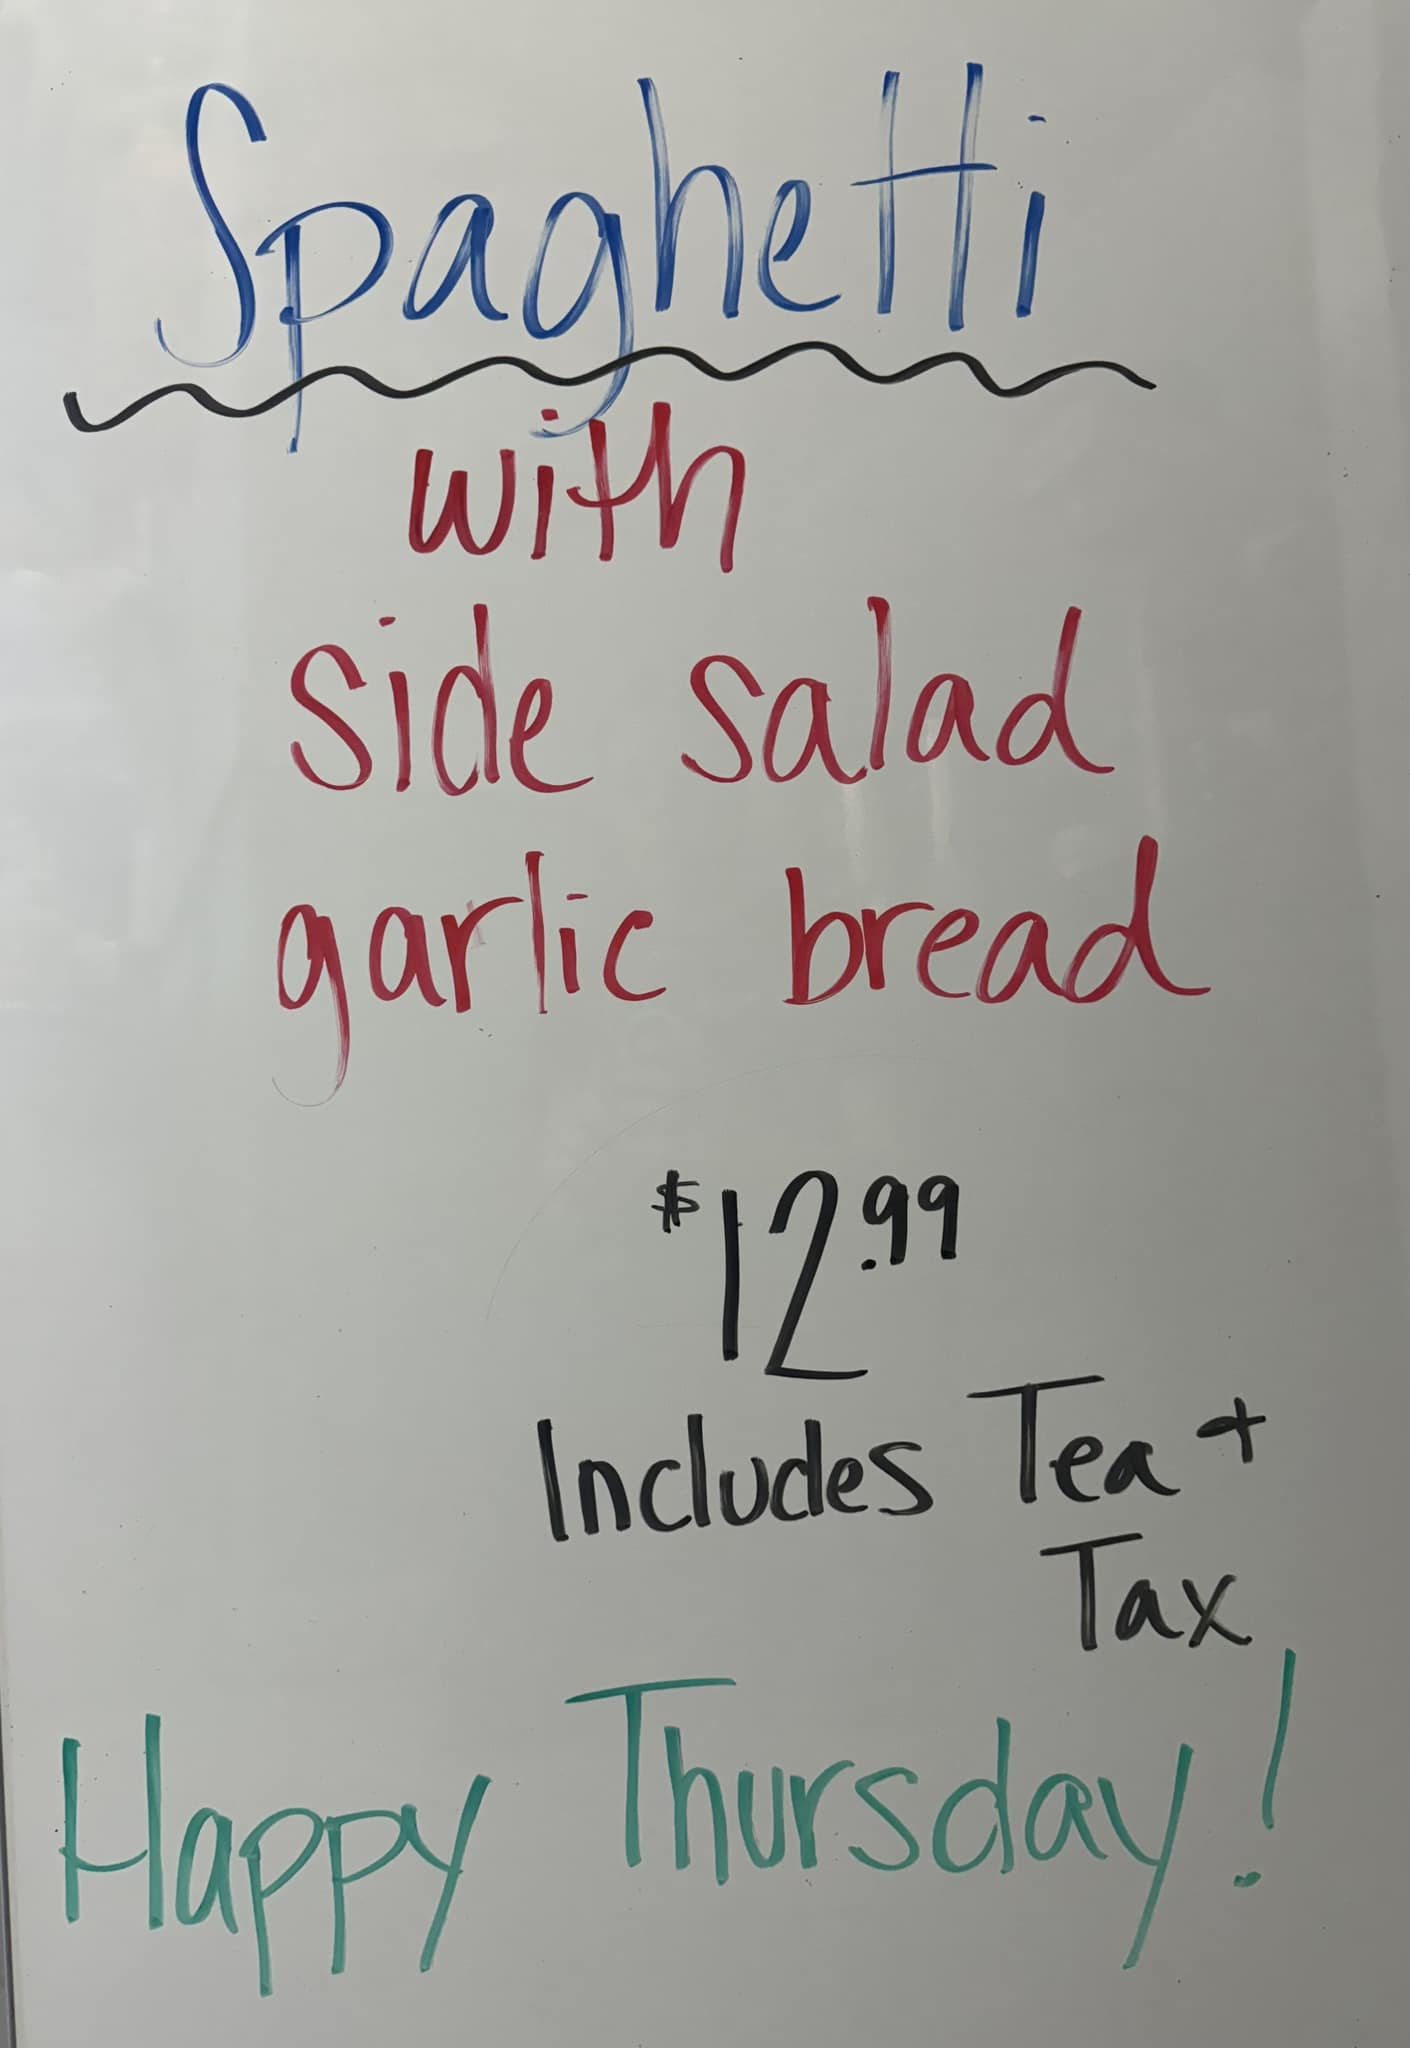 Spaghetti
with
side salad
garlic bread
$12.99
Includes Tea +
Tax
Happy Thursday!